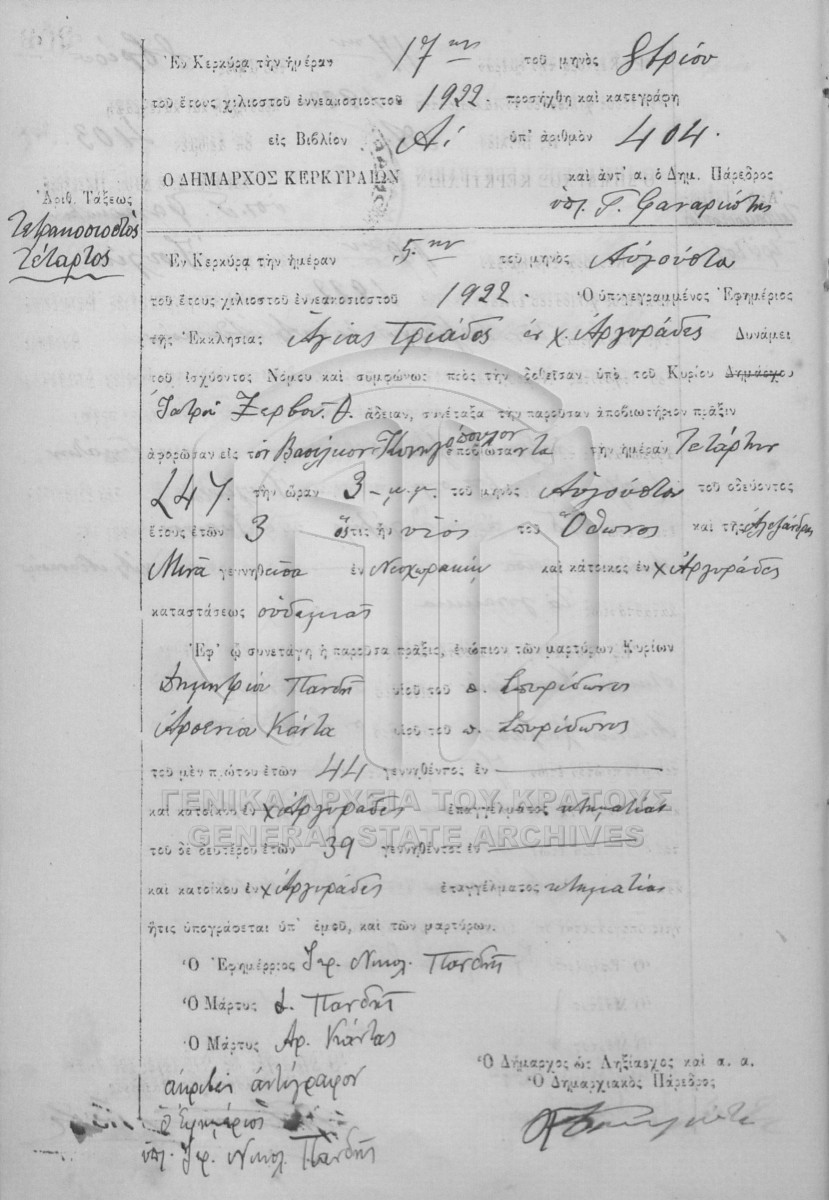 Ἐν Κερκύρᾳ τὴν ἡμέραν 17ην τοῦ μηνὸς 8βρίου
τοῦ ἔτους χιλιοστοῦ ἐννεακοσιοστοῦ 1922 προσήχθη καὶ κατεγράφη
εἰς Βιβλίον Α' ὑπ' ἀριθμὸν 404.
Ο ΔΗΜΑΡΧΟΣ ΚΕΡΚΥΡΑΙΩΝ καὶ ἀντ' α. ὁ Δημ. Πάρεδρος
ὑπ. Γ. Φαναριώτης
Ἀριθ. Τάξεως
Τετρακοσιοστὸς
Τέταρτος
Ἐν Κερκύρᾳ τὴν ἡμέραν 5ην τοῦ μηνὸς Αὐγούστου
τοῦ ἔτους χιλιοστοῦ ἐννεακοσιοστοῦ 1922. Ὁ ὑπογεγραμμένος Ἐφημέριος
τῆς Ἐκκλησίας Ἁγίας Τριάδος ἐν χ. Ἀργυράδες Δυνάμει
τοῦ ἰσχύοντος Νόμου καὶ συμφώνως πρὸς τὴν δοθεῖσαν ὑπὸ τοῦ Κυρίου Δημάρχου
Ἰατροῦ Ζερβοῦ Θ. ἄδειαν, συνέταξα τὴν παροῦσαν ἀποβιωτήριον πρᾶξιν
ἀφορῶσαν εἰς τὸν ἀποβιώσαντα τὴν ἡμέραν Τετάρτην
τὴν ὥραν 3 - μ.μ. τοῦ μηνὸς Αὐγούστου τοῦ ὁδεύοντος
ἔτους ἐτῶν 3 ὅστις ἦν υἱὸς τοῦ Ὄθωνος καὶ τῆς Ἀλεξάνδρας
Μηνᾶ γεννηθεῖσα ἐν Νεοχωρακίῳ καὶ κάτοικος ἐν χ Ἀργυράδες
καταστάσεως οὐδεμιᾶς
Ἐφ' ᾧ συνετάγη ἡ παροῦσα πρᾶξις, ἐνώπιον τῶν μαρτύρων Κυρίων
Δημητρίου Πανδῆ υἱοῦ τοῦ π. Σπυρίδωνος
Ἀρσενίου Κάντα υἱοῦ τοῦ π. Σπυρίδωνος
τοῦ μὲν πρώτου ἐτῶν 44 γεννηθέντος ἐν
ΓΕΝΙΚΑ ΑΡΧΕΙΑ ΤΟΥ ΚΡΑΤΟΥΣ
καὶ κατοίκου ἐν χ Ἀργυράδες ἐπαγγέλματος κτηματίας
GENERAL STATE ARCHIVES
τοῦ δὲ δευτέρου ἐτῶν 39 γεννηθέντος ἐν
καὶ κατοίκου ἐν χ Ἀργυράδες ἐπαγγέλματος κτηματίας
ἥτις ὑπογράφεται ὑπ' ἐμοῦ, καὶ τῶν μαρτύρων.
Ὁ Ἐφημέρριος Ἱερ. Νικολ. Πανδῆς
Ὁ Μάρτυς Δ. Πανδῆς
Ὁ Μάρτυς Αρ. Κάντας
Ὁ Δήμαρχος ὡς Ληξίαρχος καὶ α. α.
Ὁ Δημαρχιακὸς Πάρεδρος
ἀκριβὲς ἀντίγραφον
ὁ Ἐφημέριος
ὑπ. Ἱερ. Νικολ. Πανδῆς